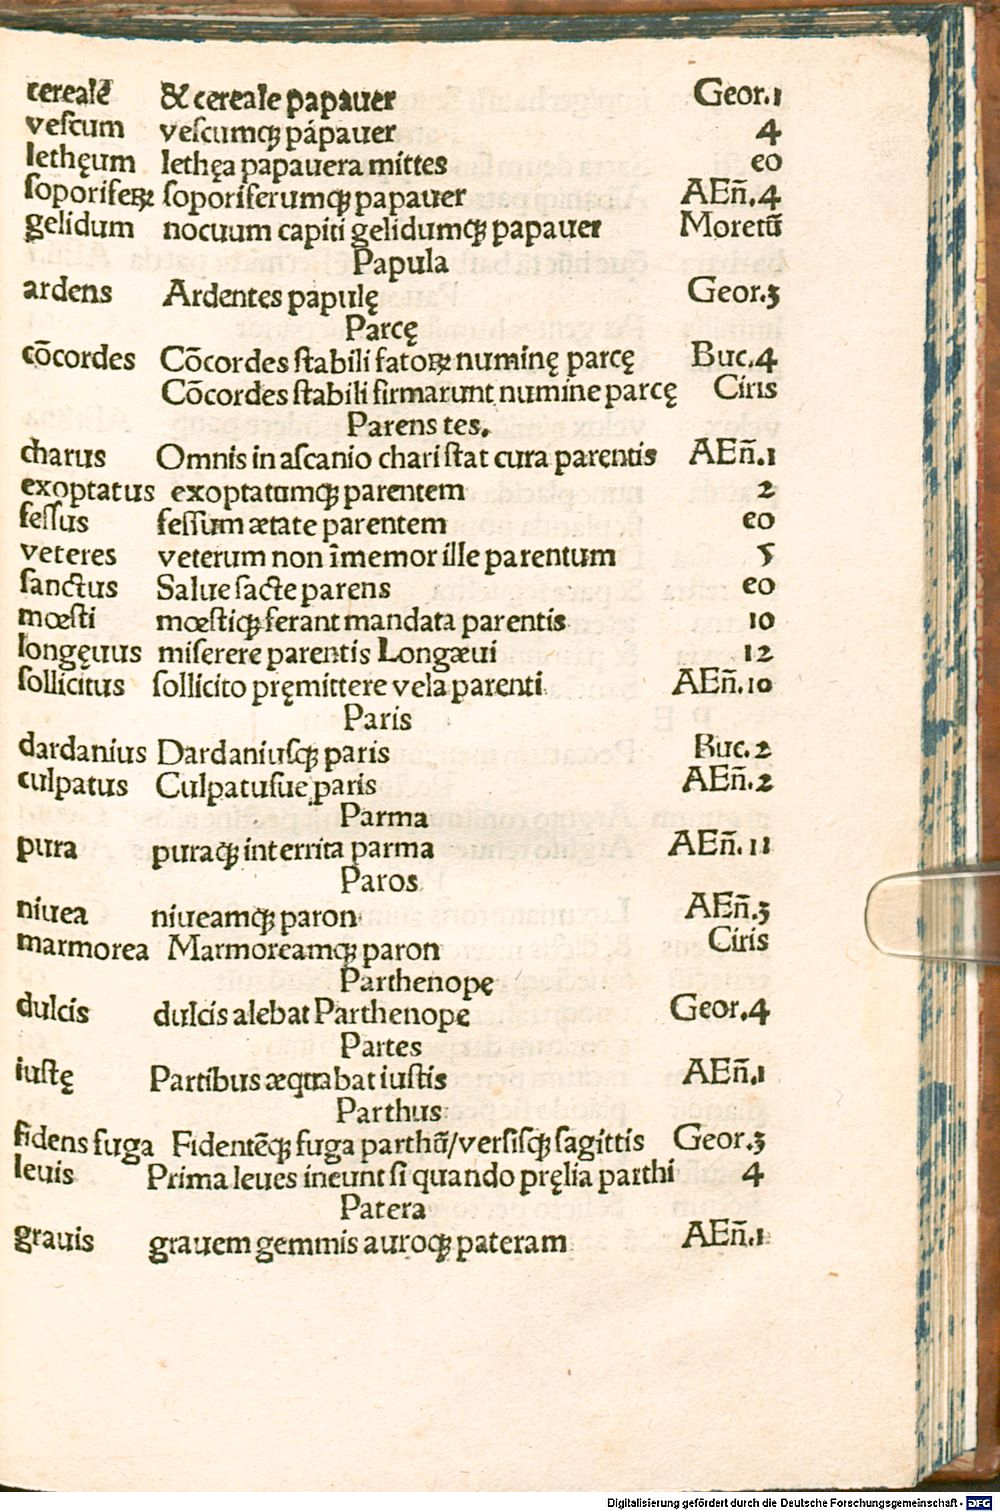 cerealē &cereale papauer Geor.1
veſcum veſcumqꝫ pápauer 4
lethęum lethęa papauera mittes eo
soporiferꝝ soporiferumqꝫ papauer AEñ.4
gelidum nocuum capiti gelidumqꝫ papauer Moretū
Papula
ardens Ardentes papulę Geor.3
Parcę
cōcordes Cōcordes ſtabili fatoꝝ numinę parcę Buc.4
Cōcordes ſtabili firmarunt numine parcę Ciris
Parens tes.
charus Omnis in aſcanio chari ſtat cura parentis AEñ.1
exoptatus exoptatumqꝫ parentem 2
feſſus feſſum ætate parentem eo
veteres veterum non īmemor ille parentum 5
sanctus Salue ſacte parens eo
mœſti mœſtiqꝫ ferant mandata parentis 10
longęuus miſerere parentis Longæui 12
sollicitus sollicito pręmittere vela parenti AEñ.10
Paris
dardanius Dardaniuſqꝫ paris Buc.2
culpatus Culpatuſue paris AEñ.2
Parma
pura puraqꝫ interrita parma AEñ.11
Paros
niuea niueamqꝫ paron AEñ.3
marmorea Marmoreamqꝫ paron Ciris
Parthenopę
dulcis dulcis alebat Parthenope Geor.4
Partes
iuſtę Partibus æquabat iuſtis AEñ.1
Parthus
fidens fuga Fidentēqꝫ fuga parthū/verſiſqꝫ ſagittis Geor.3
leuis Prima leues ineunt ſi quando pręlia parthi 4
Patera
grauis grauem gemmis auroqꝫ pateram AEñ.1
Digitalisierung gefördert durch die Deutsche Forschungsgemeinschaft - DFG